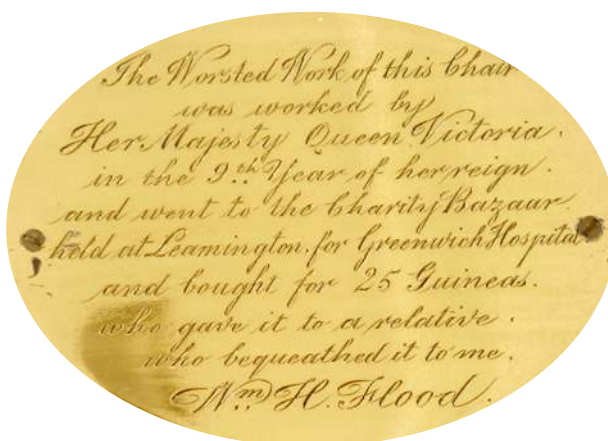 The Worsted Work of this Chair
was worked by
Her Majesty Queen Victoria.
in the 9th Year of her reign.
and went to the Charity Bazaar
held at Leamington. for Greenwich Hospital.
and bought for 25 Guineas.
who gave it to a relative.
who bequeathed it to me.
Wm H. Flood.